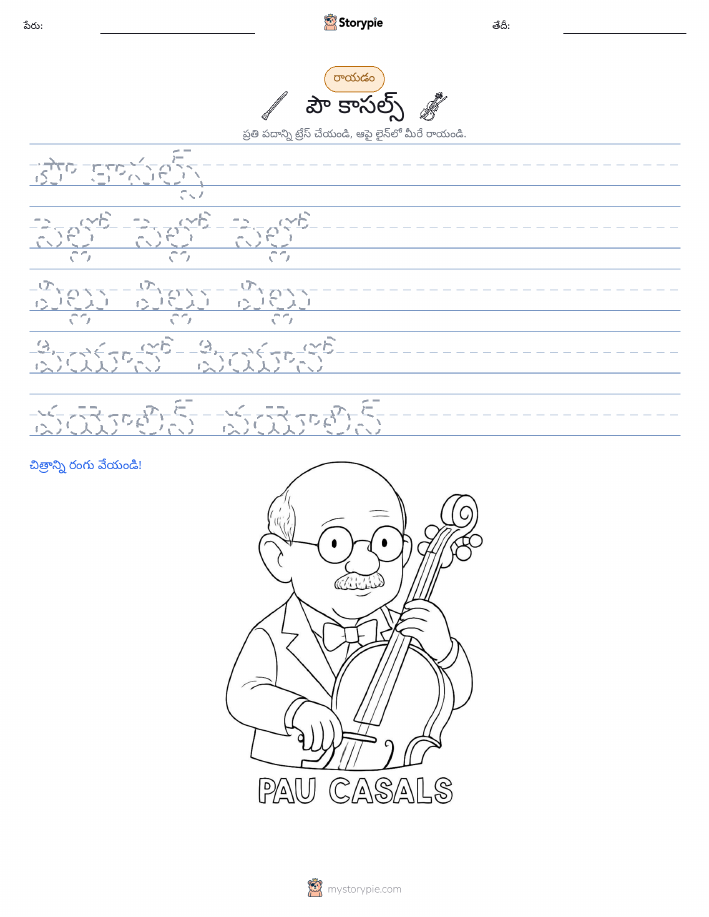 పేరు:
Storypie
తేదీ:
రాయడం
పౌ కాసల్స్
ప్రతి పదాన్ని ట్రేస్ చేయండి, ఆపై లైన్‌లో మీరే రాయండి.
పౌ కాసల్స్
సెల్లో సెల్లో సెల్లో
విల్లు విల్లు విల్లు
పియానో పియానో
వయోలిన్ వయోలిన్
చిత్రాన్ని రంగు వేయండి!
PAU CASALS
mystorypie.com